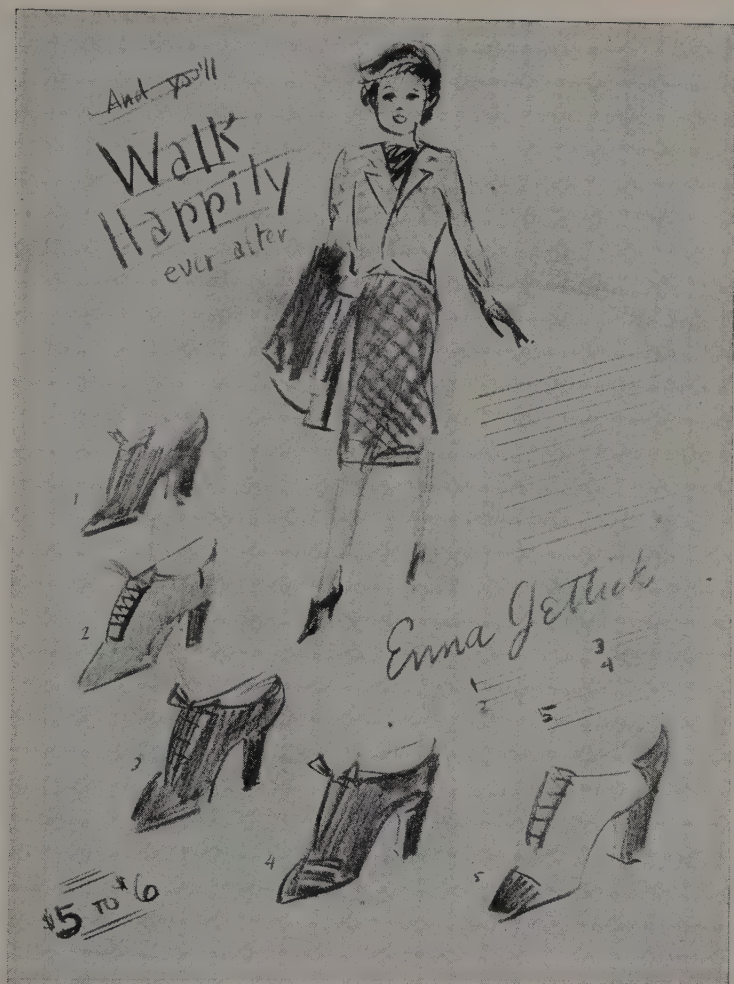 And you'll
Walk
Happily
ever after
1
2
3
4
5
Enna Jettick
3
4
1
2
5
$5 TO $6